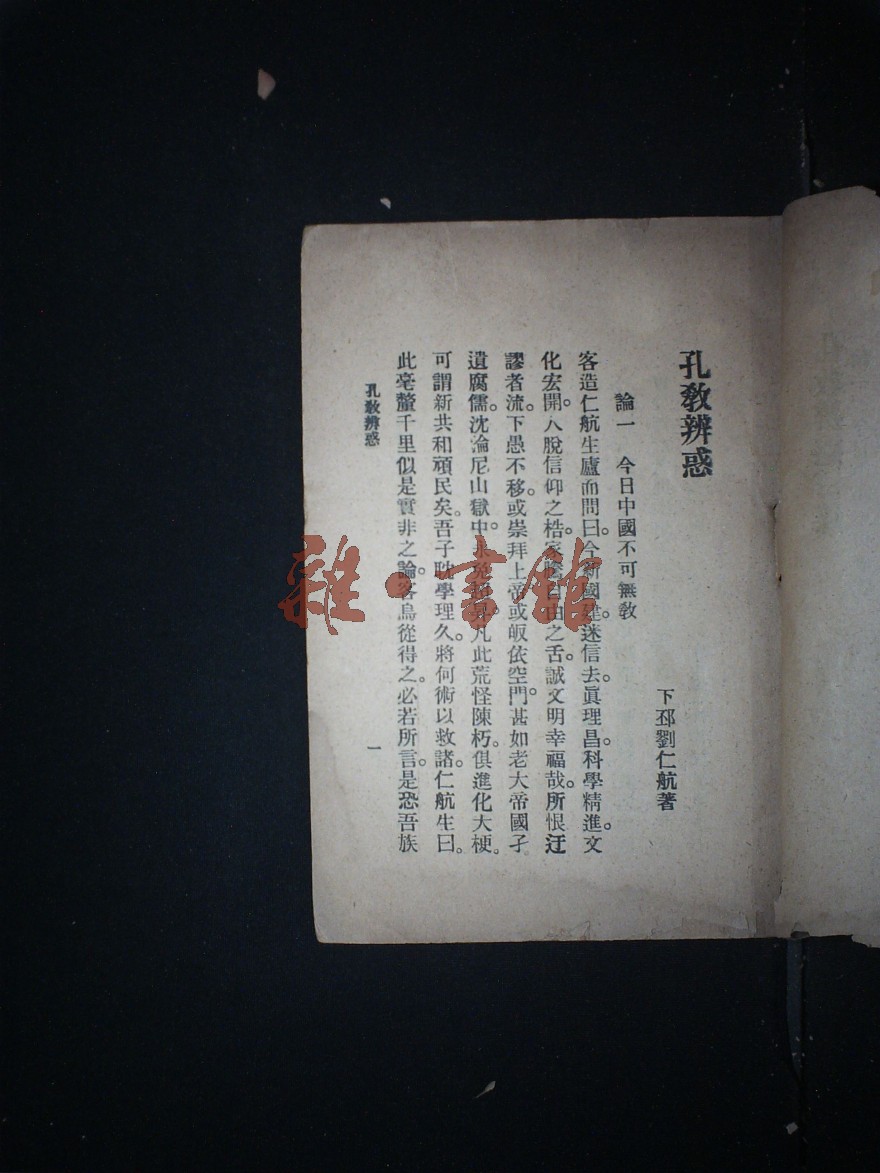 孔教辨惑
下邳劉仁航著
論一　今日中國不可無教
客造仁航生廬而問曰。今新國建。迷信去。眞理昌。科學精進。文
化宏開。人脫信仰之梏。家騰自由之舌。誠文明幸福哉。所恨迂
謬者流。下愚不移。或崇拜上帝或皈依空門。甚如老大帝國孑
遺腐儒。沈淪尼山獄中。凡此荒怪陳朽。俱進化大梗。
可謂新共和頑民矣。吾子耽學理久。將何術以救諸。仁航生曰。
此毫釐千里似是實非之論。客烏從得之。必若所言。是恐吾族
孔教辨惑
一
雜·書館